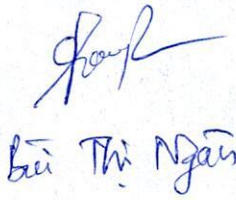 Bùi Thị Ngân